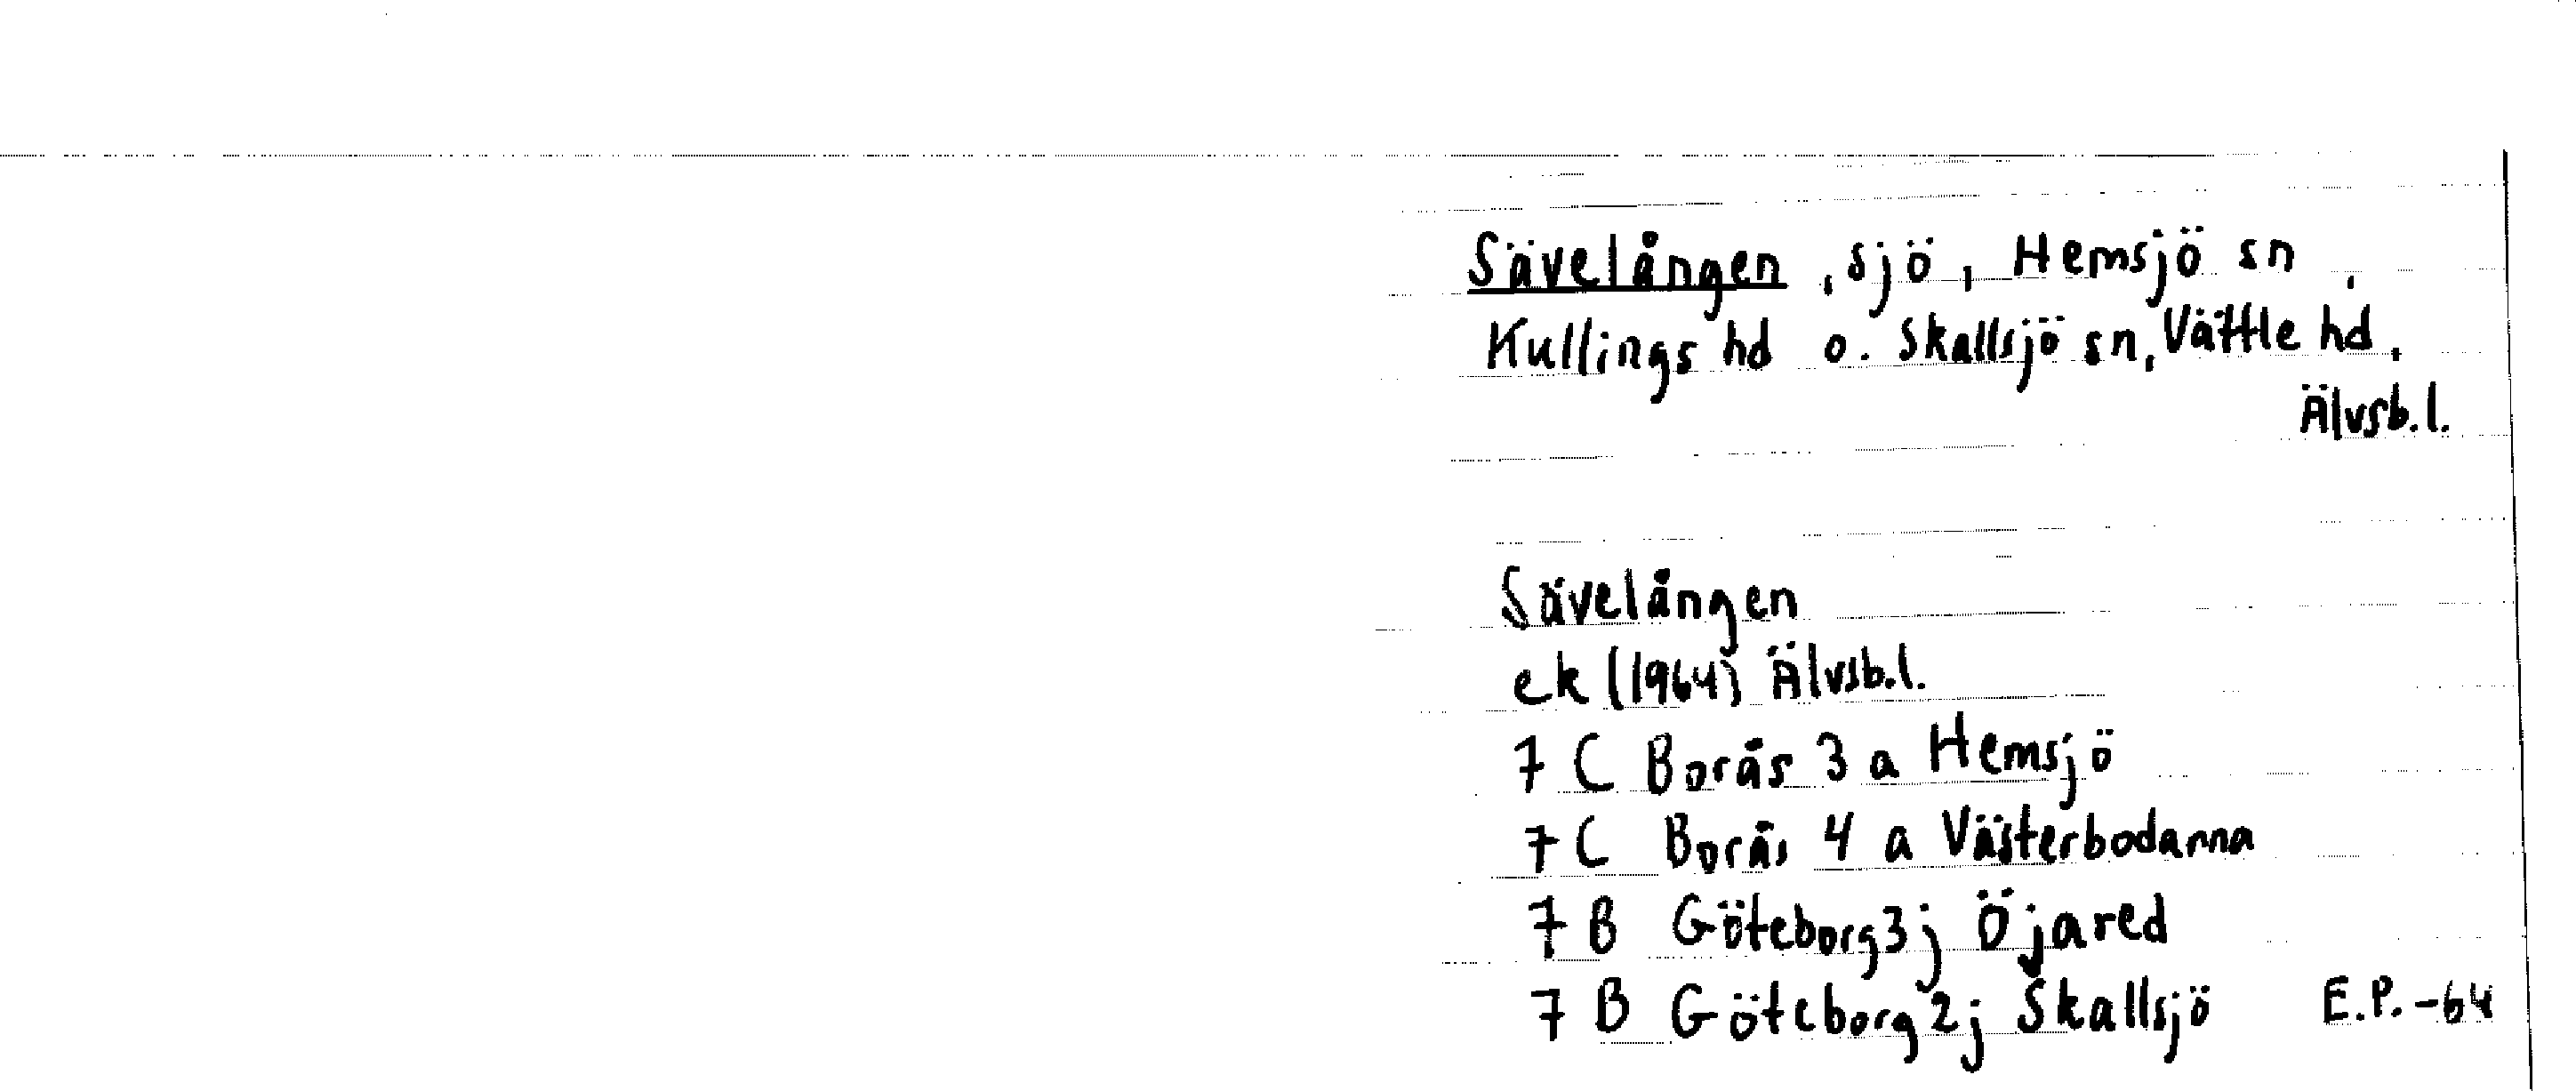 Sävelången, sjö, Hemsjö sn,
Kullings hd o. Skallsjö sn, Vättle hd,
Älvsb.l.
Sävelången
ek (1964) Älvsb.l.
7 C Borås 3 a Hemsjö
7 C Borås 4 a Västerbodarna
7 B Göteborg 3 j Öjared
7 B Göteborg 2 j Skallsjö E.P. -64